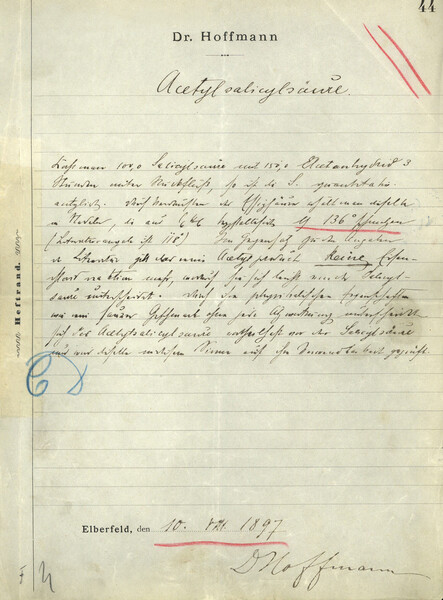 44
Dr. Hoffmann
Acetylsalicylsäure.
100,0 Salicylsäure mit 150,0 3
Stunden unter Rückfluß, so ist die S. quantitativ
acetylirt. Durch der Essigsäure erhält man dieselbe
in Nadeln, die aus krystallisirt 136° schmelzen
(Literaturangabe ist 118°). Im Gegensatz zu den Angaben
der Literatur gibt das reine Acetylproduct keine Eisen-
mehr, wodurch sie sich von der Salicyl-
säure unterscheidet. Durch ihre physikalischen Eigenschaften
wie einen sauren Geschmack ohne jede Ätzwirkung unterscheidet
sich die Acetylsalicylsäure vortheilhaft von der Salicylsäure
und wird dieselbe in diesem Sinne auf ihre Verwendbarkeit geprüft.
Heftrand.
Elberfeld, den 10. VIII. 1897
Dr Hoffmann